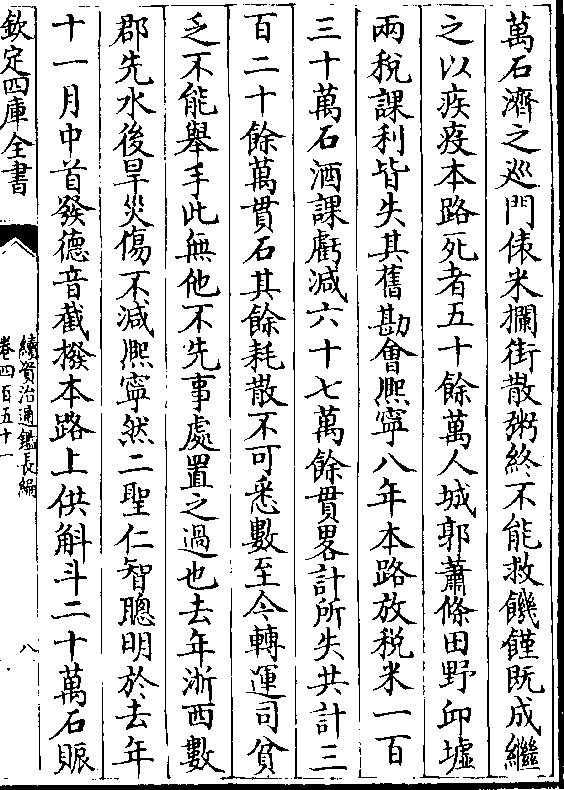 萬石濟之巡門俵米攔街散粥終不能救饑饉既成繼
之以疾疫本路死者五十餘萬人城郭蕭條田野邱墟
兩稅課利皆失其舊勘會熙寧八年本路放稅米一百
三十萬石酒課虧減六十七萬餘貫畧計所失共計三
百二十餘萬貫石其餘耗散不可悉數至今轉運司貧
乏不能舉手此無他不先事處置之過也去年浙西數
郡先水後旱災傷不減熙寧然二聖仁智聰明於去年
十一月中首發德音截撥本路上供斛斗二十萬石賑
欽定四庫全書
續資治通鑑長編
卷四百五十一
八